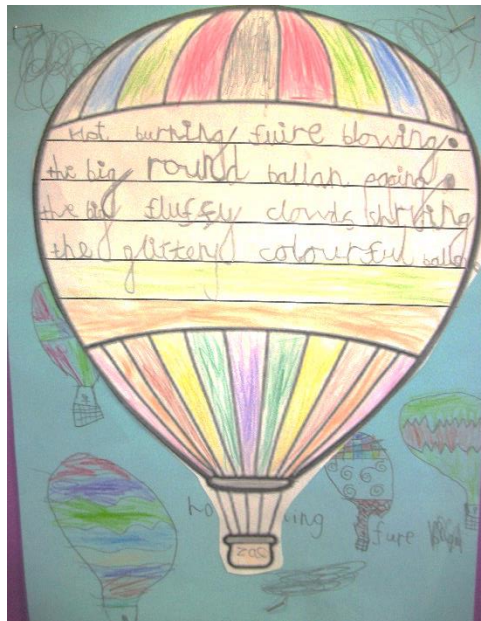 Hot burning fuire blowing.
the big round ballan poping.
the big fluffy clowds shrving
the glittery colourful ballo
ho ing
fure